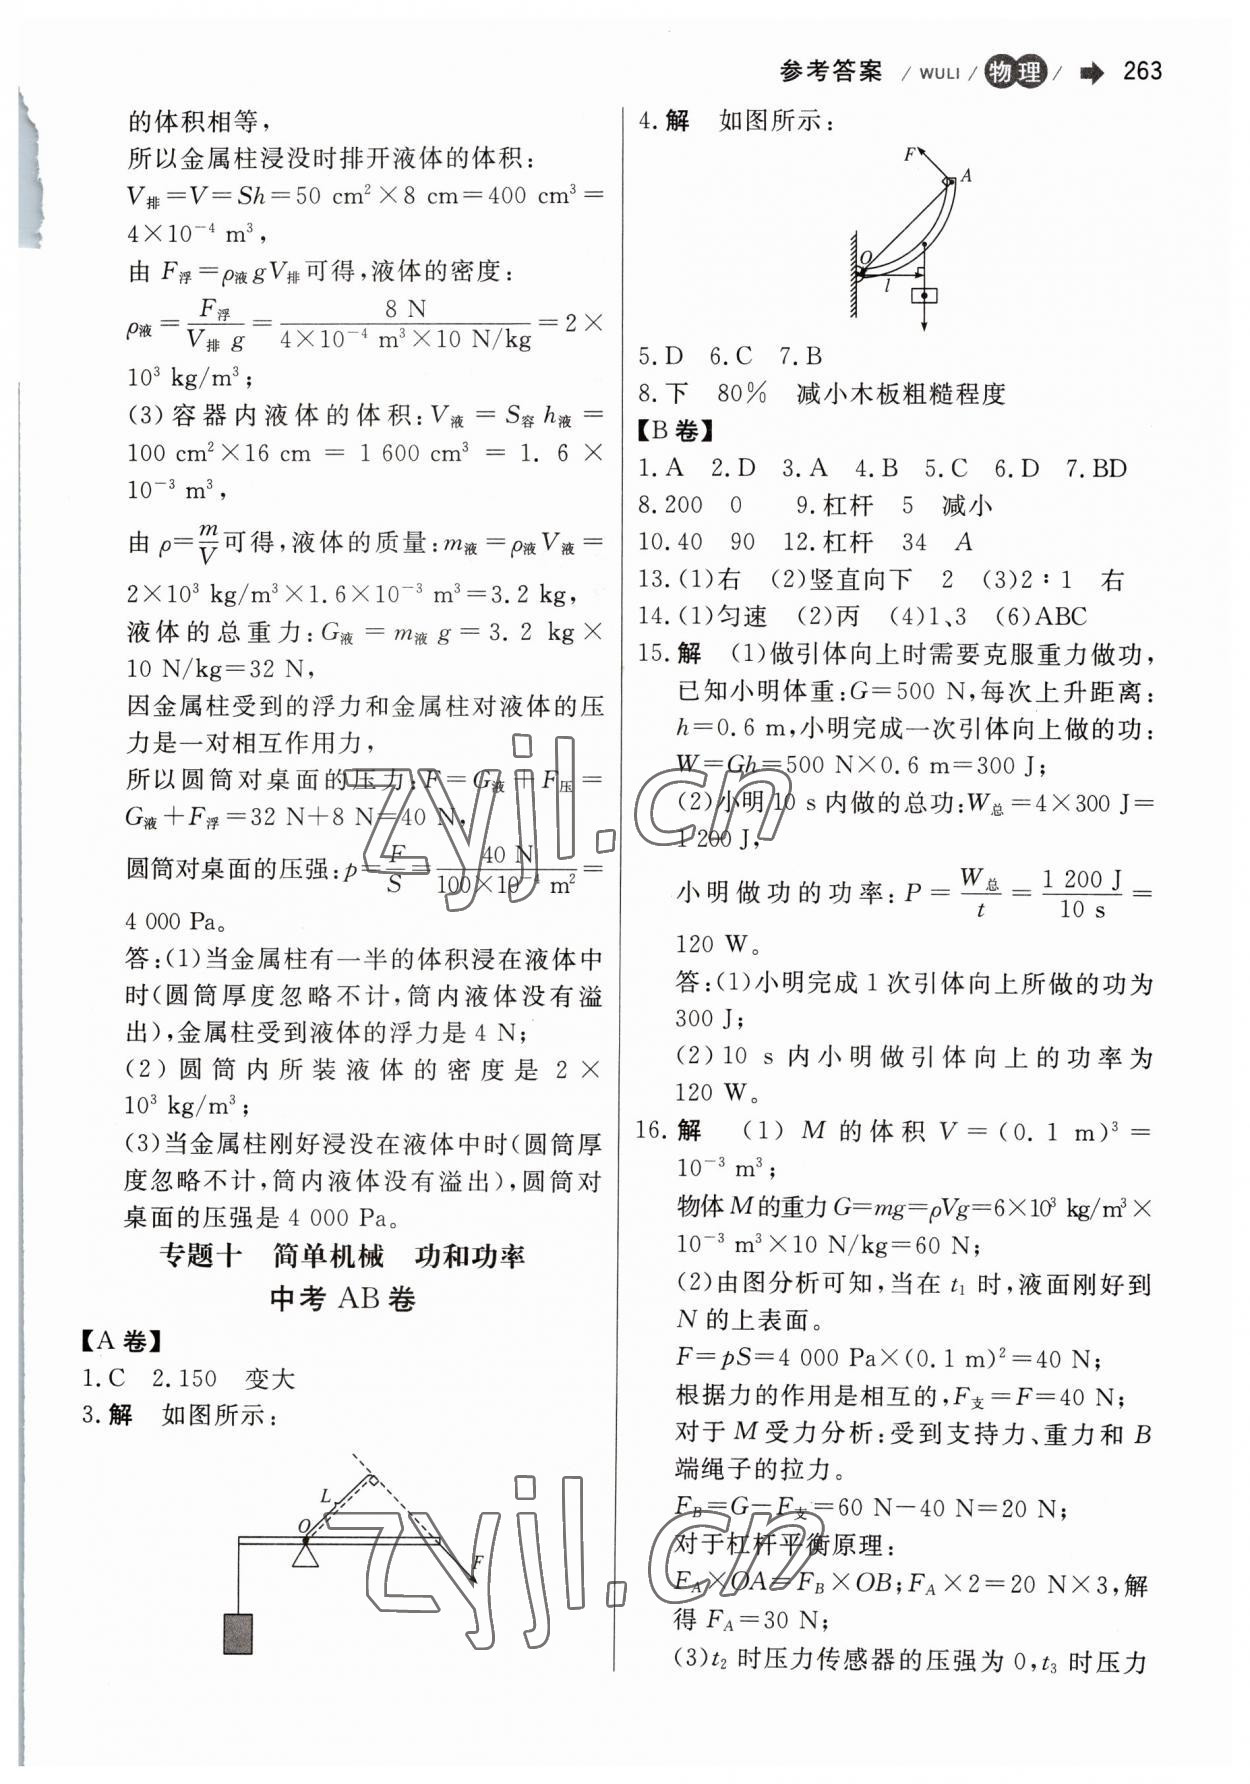 参考答案 / WULI / 物理 / 263
的体积相等，
所以金属柱浸没时排开液体的体积：
V排=V=Sh=50 cm²×8 cm=400 cm³=
4×10⁻⁴ m³，
由 F浮=ρ液gV排可得，液体的密度：
ρ液=F浮/(V排 g)=8 N/(4×10⁻⁴ m³×10 N/kg)=2×
10³ kg/m³；
(3)容器内液体的体积：V液=S容h液=
100 cm²×16 cm=1 600 cm³=1.6×
10⁻³ m³，
由 ρ=m/V可得，液体的质量：m液=ρ液V液=
2×10³ kg/m³×1.6×10⁻³ m³=3.2 kg，
液体的总重力：G液=m液g=3.2 kg×
10 N/kg=32 N，
因金属柱受到的浮力和金属柱对液体的压
力是一对相互作用力，
所以圆筒对桌面的压力：F=G液+F压=
G液+F浮=32 N+8 N=40 N，
圆筒对桌面的压强：p=F/S=40 N/(100×10⁻⁴ m²)=
4 000 Pa。
答：(1)当金属柱有一半的体积浸在液体中
时(圆筒厚度忽略不计，筒内液体没有溢
出)，金属柱受到液体的浮力是 4 N；
(2)圆筒内所装液体的密度是 2×
10³ kg/m³；
(3)当金属柱刚好浸没在液体中时(圆筒厚
度忽略不计，筒内液体没有溢出)，圆筒对
桌面的压强是 4 000 Pa。
专题十 简单机械 功和功率
中考 AB 卷
【A 卷】
1.C 2.150 变大
3.解 如图所示：
L
O
F
4.解 如图所示：
F
A
O
l
5.D 6.C 7.B
8.下 80% 减小木板粗糙程度
【B 卷】
1.A 2.D 3.A 4.B 5.C 6.D 7.BD
8.200 0 9.杠杆 5 减小
10.40 90 12.杠杆 34 A
13.(1)右 (2)竖直向下 2 (3)2∶1 右
14.(1)匀速 (2)丙 (4)1、3 (6)ABC
15.解 (1)做引体向上时需要克服重力做功，
已知小明体重：G=500 N，每次上升距离：
h=0.6 m，小明完成一次引体向上做的功：
W=Gh=500 N×0.6 m=300 J；
(2)小明 10 s 内做的总功：W总=4×300 J=
1 200 J，
小明做功的功率：P=W总/t=1 200 J/10 s=
120 W。
答：(1)小明完成 1 次引体向上所做的功为
300 J；
(2)10 s 内小明做引体向上的功率为
120 W。
16.解 (1) M 的体积 V=(0.1 m)³=
10⁻³ m³；
物体 M 的重力 G=mg=ρVg=6×10³ kg/m³×
10⁻³ m³×10 N/kg=60 N；
(2)由图分析可知，当在 t₁ 时，液面刚好到
N 的上表面。
F=pS=4 000 Pa×(0.1 m)²=40 N；
根据力的作用是相互的，F支=F=40 N；
对于 M 受力分析：受到支持力、重力和 B
端绳子的拉力。
F_B=G-F支=60 N-40 N=20 N；
对于杠杆平衡原理：
F_A×OA=F_B×OB；F_A×2=20 N×3，解
得 F_A=30 N；
(3)t₂ 时压力传感器的压强为 0，t₃ 时压力
zyjl.cn
zyjl.cn